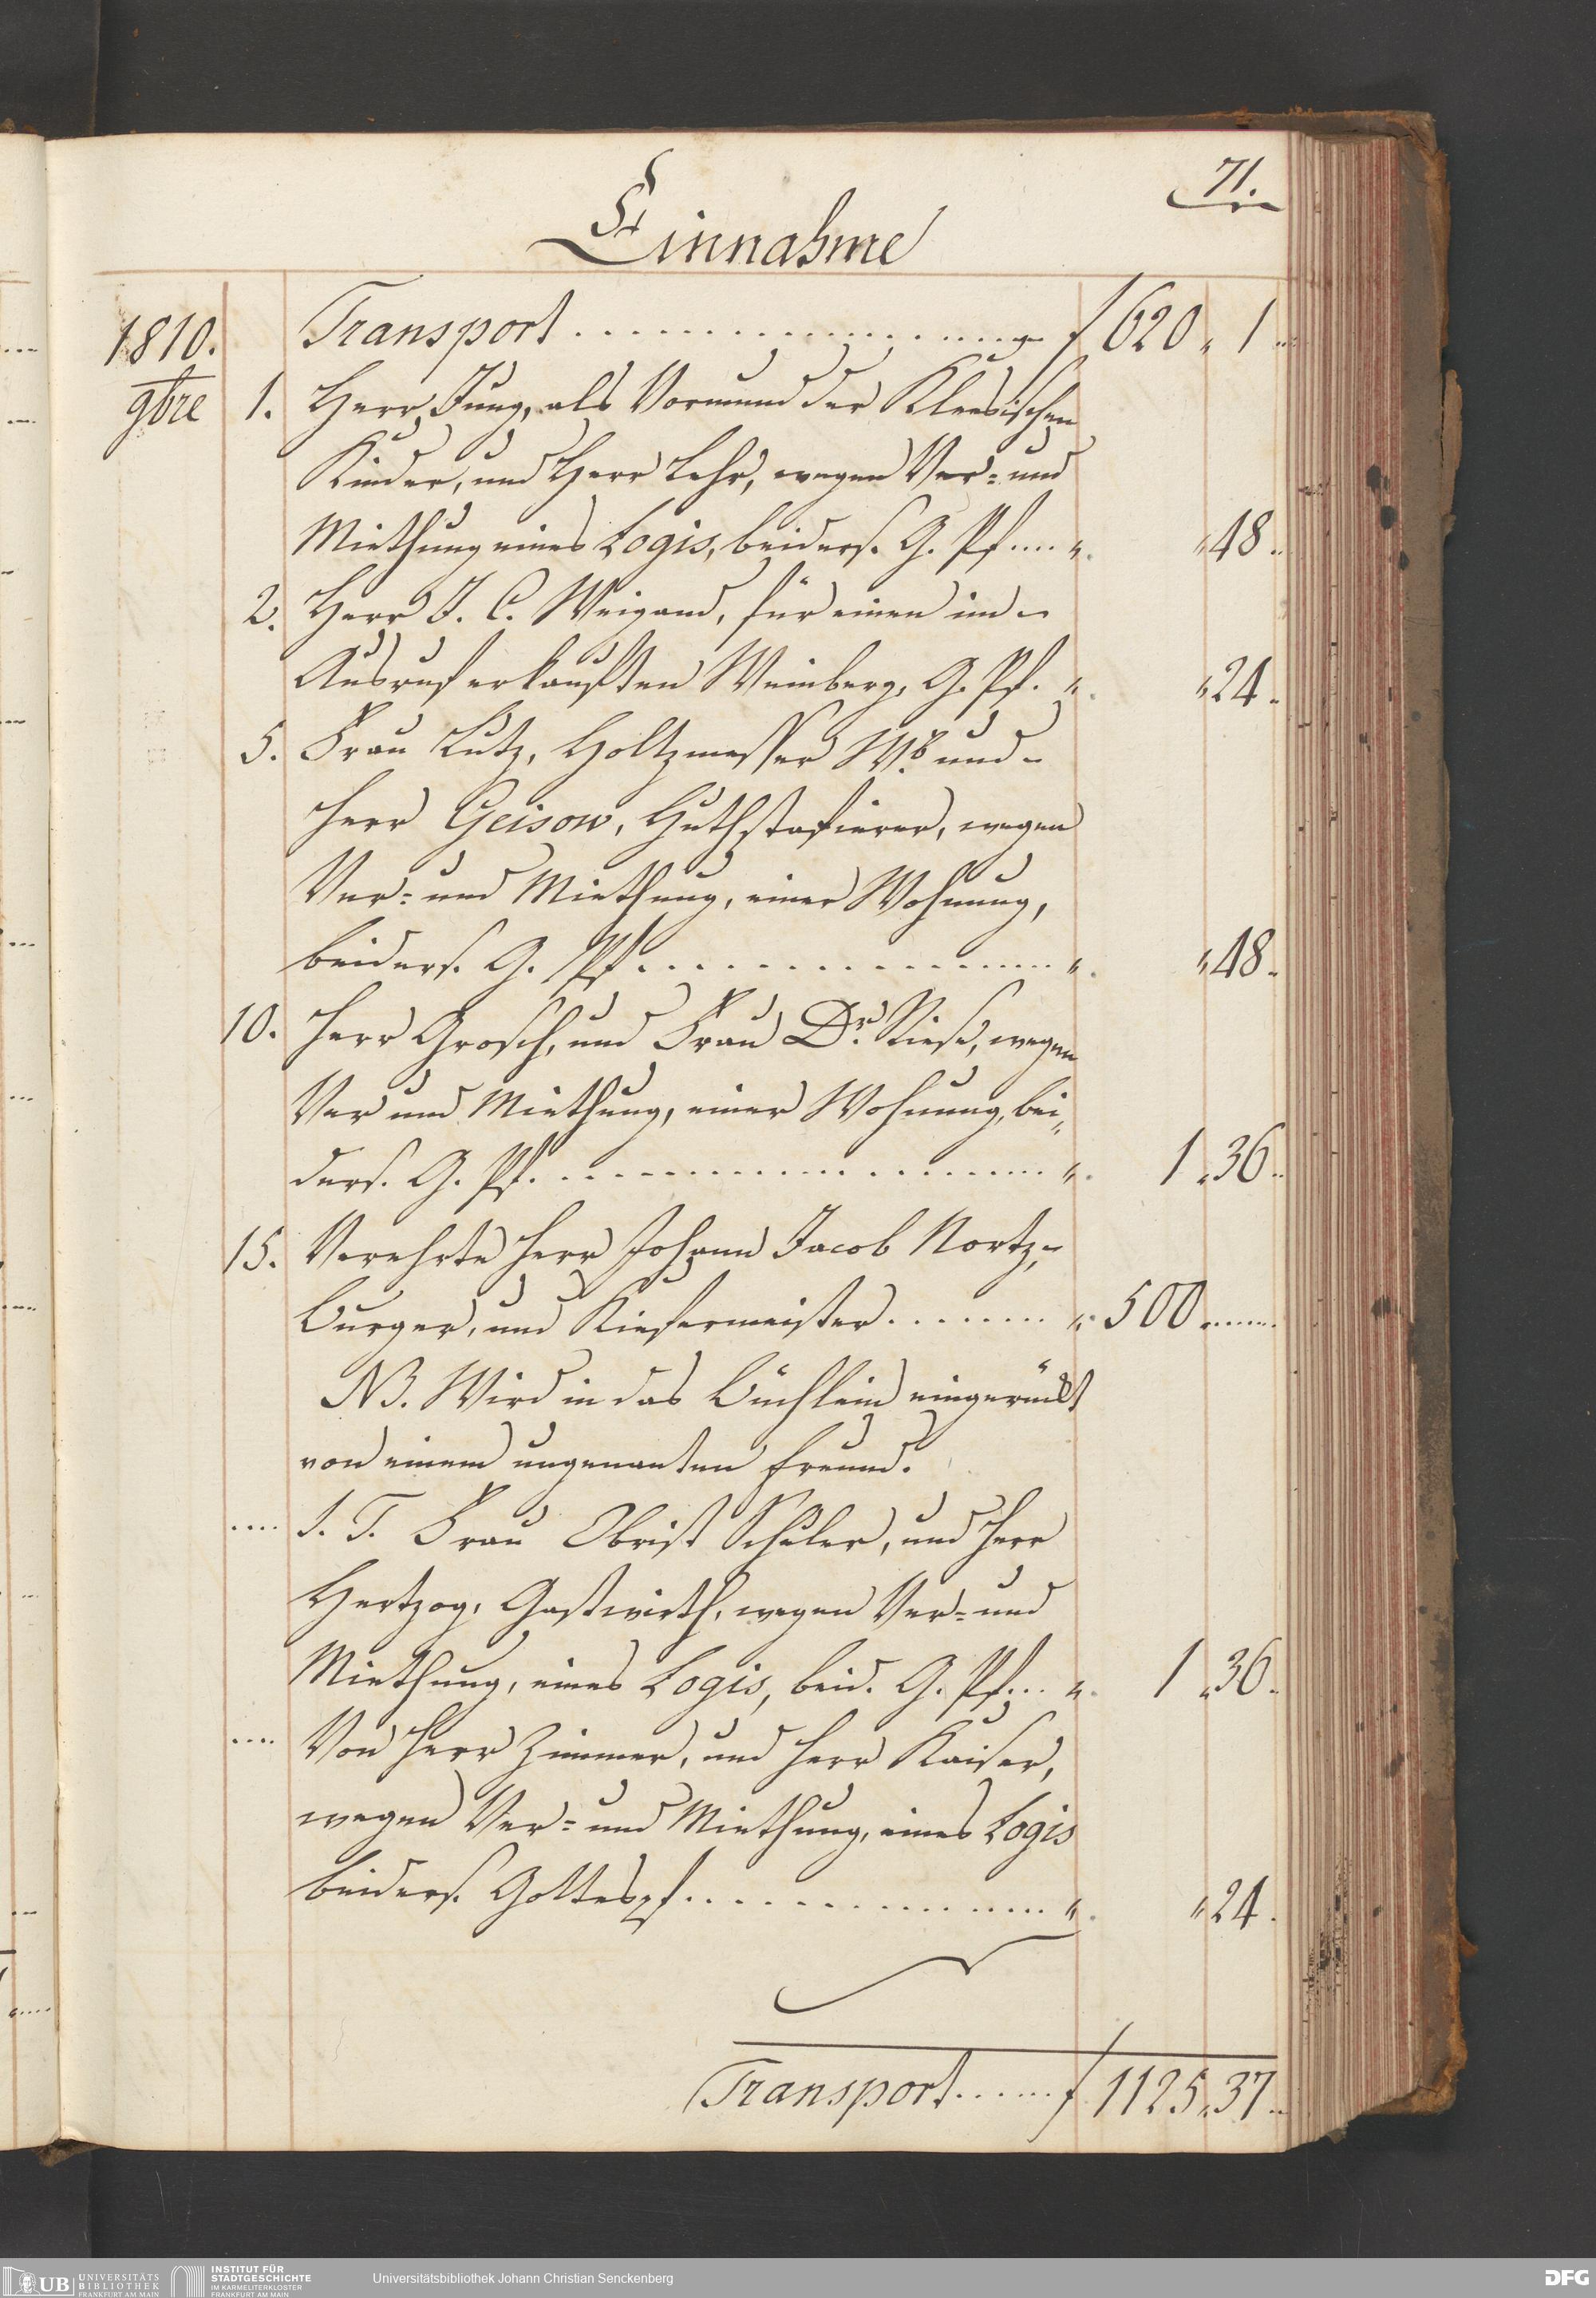 71.
Einnahme
1810. Transport . . . . . . . . . . f 620 „ 1 ..
9bre 1. Herr Jung, als Vormund der Kleesischen
Kinder, und Herr Lehr, wegen Ver= und
Miethung eines Logis, beiders. G. Pf .... „. „ 48 ..
2. Herr J. C. Weigand, für einen im
Ausruf erkauften Weinberg, G. Pf. „. „ 24 ..
5. Frau Lutz, Holtzmesser Wb. und
Herr Geisow, Huthstafierer, wegen
Ver= und Miethung, einer Wohnung,
beiders. G. Pf . . . . . . . . . . „. „ 48 ..
10. Herr Grosch, und Frau Dr. Riese, wegen
Ver und Miethung, einer Wohnung, bei„
ders. G. Pf. . . . . . . . . . . „. 1 „ 36 ..
15. Verehrte Herr Johann Jacob Nortz,
Burger, und Kiefermeister . . . . . . . . „. 500 .......
NB. Wird in das Büchlein eingerückt
von einem ungenanten Freund.
.... S. T. Frau Obrist Schuler, und Herr
Hertzog, Gastwirth, wegen Ver= und
Miethung, eines Logis, beid. G. Pf ... „. 1 „ 36 ..
.... Von Herr Zimmer, und Herr Kaiser,
wegen Ver= und Miethung, eines Logis
beiders. Gottespf. . . . . . . . . . „. „ 24 .
Transport ....... f 1125 „ 37 ..
UB UNIVERSITÄTS
BIBLIOTHEK
FRANKFURT AM MAIN
INSTITUT FÜR
STADTGESCHICHTE
IM KARMELITERKLOSTER
FRANKFURT AM MAIN
Universitätsbibliothek Johann Christian Senckenberg
DFG